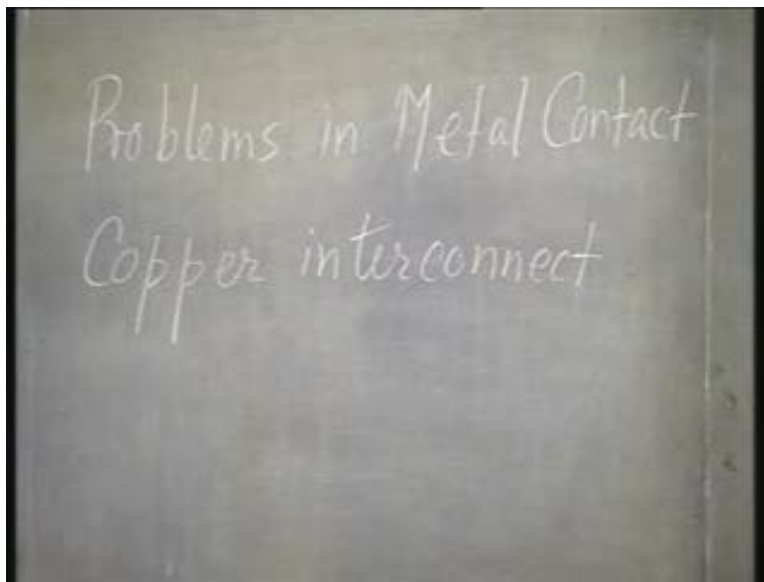 Problems in Metal Contact
Copper interconnect